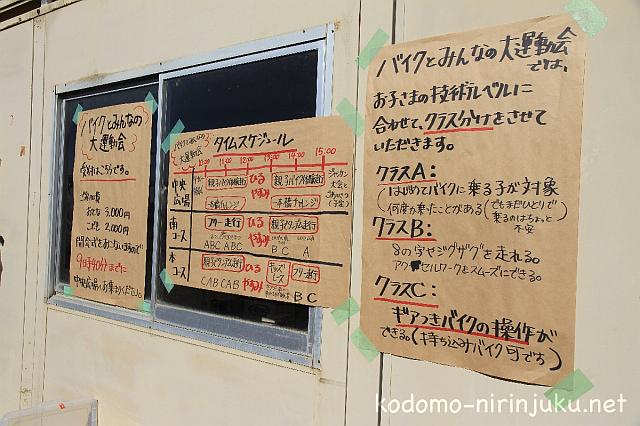 バイクとみんなの
大運動会
受付はこちらです。
参加費
おとな 3,000円
こども 2,000円
開会式をおこないますので
9時40分までに
中央広場へお集まりください。
バイクとみんなの
大運動会
タイムスケジュール
10:00 11:00 12:00 13:00 14:00 15:00
中央
広場
親子バイク体験走行
ひる
やすみ
親子バイク体験走行
一本橋チャレンジ
一本橋チャレンジ
ジャンケン
大会と
(予定)
南
コース
フリー走行
ひる
やすみ
親子タンデム走行
ABC ABC
B C A
本
コース
親子タンデム走行
ひる
やすみ
キッズ
レース
フリー走行
CAB CAB
B C
バイクとみんなの大運動会
では、
お子さまの技術レベルに
合わせて、クラス分けをさせて
いただきます。
クラスA:
(はじめてバイクに乗る子が対象
何度か乗ったことがある(でもまだひとりで
乗るのはちょっと
不安
クラスB:
8の字やジグザグを走れる。
アクセルワークもスムーズにできる。
クラスC:
ギアつきバイクの操作が
できる。(持ち込みバイク可です)
kodomo-nirinjuku.net